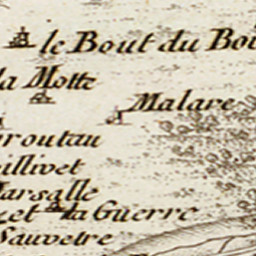 le Bout du Boi
la Motte
Malare
routau
illivet
Marsalle
et la Guerre
Sauvetre